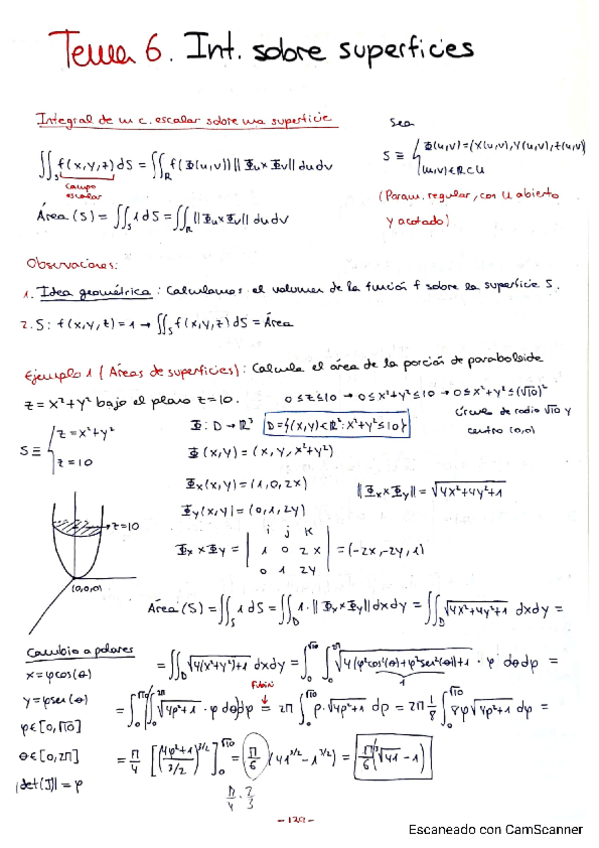 Tema 6. Int. sobre superficies
Integral de un c. escalar sobre una superficie
Sea
∬_S f(x,y,z) dS = ∬_R f(Φ(u,v)) ||Φu×Φv|| du dv
campo escalar
S ≡ { Φ(u,v) = (x(u,v), y(u,v), z(u,v))
(u,v) ∈ R ⊂ U
(Param. regular, con U abierto
y acotado)
Área (S) = ∬_S 1 dS = ∬_R ||Φu×Φv|| du dv
Observaciones:
1. Idea geométrica: Calculamos el volumen de la función f sobre la superficie S.
2. S: f(x,y,z) = 1 → ∬_S f(x,y,z) dS = Área
Ejemplo 1 (Áreas de superficies): Calcula el área de la porción de paraboloide
z = x²+y² bajo el plano z=10. 0≤z≤10 → 0≤x²+y²≤10 → 0≤x²+y²≤(√10)²
círculo de radio √10 y
centro (0,0)
S ≡ { z = x²+y²
z = 10
Φ: D → ℝ³ D = {(x,y) ∈ ℝ²: x²+y² ≤ 10}
Φ(x,y) = (x, y, x²+y²)
Φx(x,y) = (1,0,2x)
||Φx×Φy|| = √4x²+4y²+1
Φy(x,y) = (0,1,2y)
z=10
(0,0,0)
Φx × Φy = | i j k
1 0 2x
0 1 2y | = (-2x,-2y,1)
Área (S) = ∬_S 1 dS = ∬_D 1·||Φx×Φy|| dx dy = ∬_D √4x²+4y²+1 dx dy =
Cambio a polares
x = ρcos(θ)
y = ρsen(θ)
ρ ∈ [0,√10]
θ ∈ [0,2π]
|det(J)| = ρ
= ∬_D √4(x²+y²)+1 dx dy = ∫_0^√10 ∫_0^2π √4(ρ²cos²(θ)+ρ²sen²(θ))+1 · ρ dθ dρ =
1
Fubini
= ∫_0^√10 ∫_0^2π √4ρ²+1 · ρ dθ dρ = 2π ∫_0^√10 ρ·√4ρ²+1 dρ = 2π 1/8 ∫_0^√10 8ρ√4ρ²+1 dρ =
= π/4 [(4ρ²+1)^3/2 / 3/2]_0^√10 = π/6 (41^3/2 - 1^3/2) = π/6 (³√41 - 1)
π/4 · 2/3
Escaneado con CamScanner